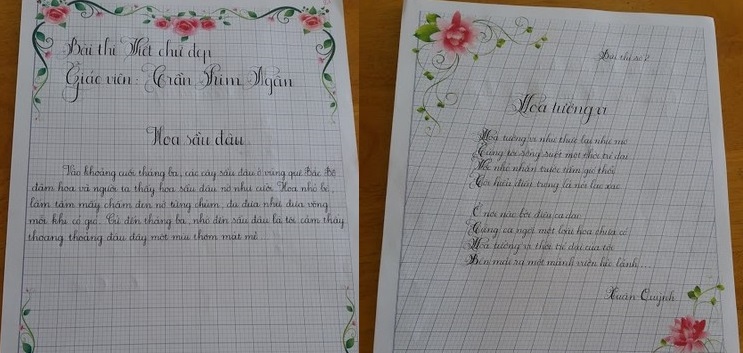 Bài thi Viết chữ đẹp
Giáo viên: Trần Kim Ngân
Hoa sầu đâu
Vào khoảng cuối tháng ba, các cây sầu đâu ở vùng quê Bắc Bộ
đâm hoa và người ta thấy hoa sầu đâu nở như cười. Hoa nhỏ bé,
lấm tấm mấy chấm đen nở từng chùm, đu đưa như đưa võng
mỗi khi có gió. Cứ đến tháng ba, nhớ đến sầu đâu là tôi cảm thấy
thoang thoảng đâu đây một mùi thơm mát mẻ...
Bài thi số 2
Hoa tường vi
Hoa tường vi như thực lại như mơ
Cùng tôi sống suốt một thời trẻ dại
Hoa nhỏ nhắn trước tầm gió thổi
Gọi hiểu điều trong lá nói lao xao
Ở nơi nào bởi điều ca dao
Cũng ca ngợi một loài hoa chưa có
Hoa tường vi thời trẻ dại của tôi
Đến mãi sự một mảnh vườn
Xuân Quỳnh